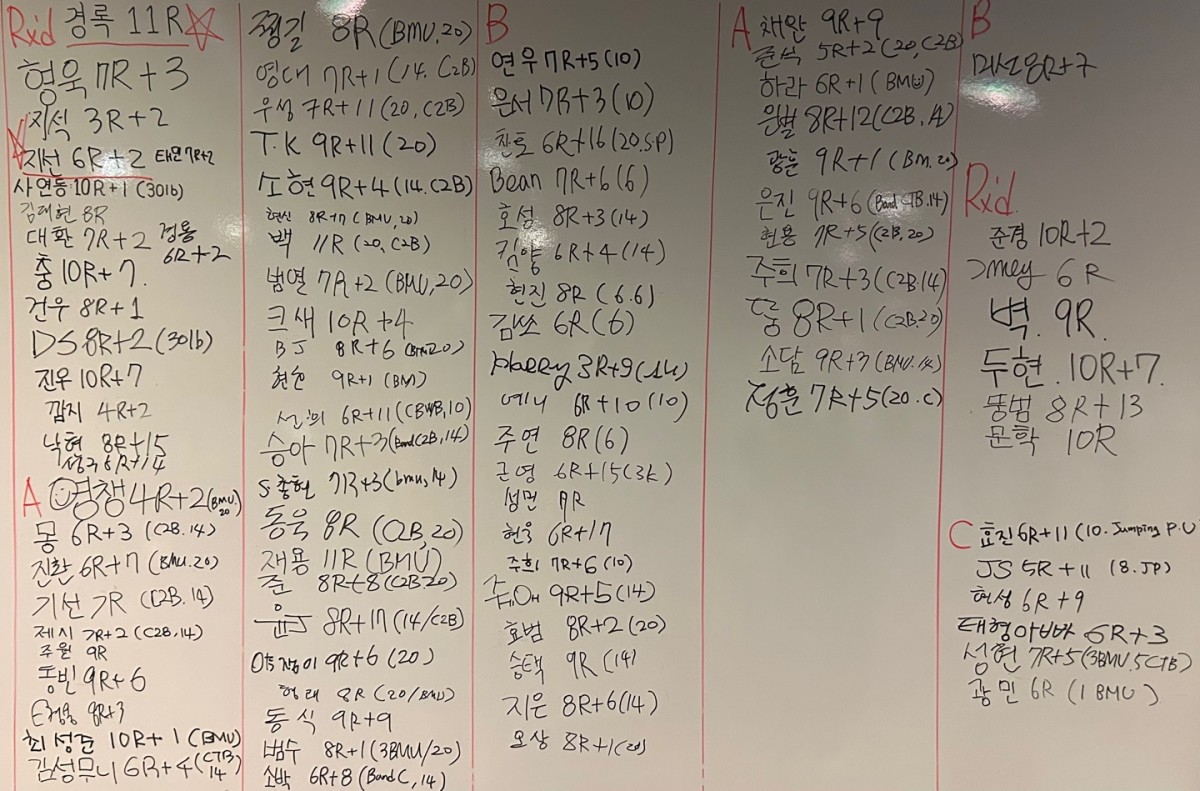 Rxd 경록 11R
형욱 7R+3
지식 3R+2
지선 6R+2 태연 7R+2
사연동 10R+1 (30lb)
김태현 8R
대환 7R+2 정용 6R+2
충 10R+7.
건우 8R+1
DS 8R+2 (30lb)
진우 10R+7
깜지 4R+2
낙혀 8R+15
성구 6R+14
A 영쟁 4R+2 (BMU. 20)
몽 6R+3 (C2B.14)
진환 6R+7 (BMU.20)
기선 7R (C2B.14)
제시 7R+2 (C2B,14)
주원 9R
동빈 9R+6
8R+3
최성준 10R+1 (BMU)
김성무니 6R+4 (CTB 14
쩡길 8R (BMU,20)
영대 7R+1 (14. C2B)
우성 7R+11 (20, C2B)
T.K 9R+11 (20)
소현 9R+4 (14.C2B)
현신 8R+7 (BMU,20)
백 11R (20, C2B)
범열 7R+2 (BMU,20)
크새 10R+4
BJ 8R+6 (BMU20)
현순 9R+1 (BM)
설희 6R+11 (10)
승아 7R+3 (Band C2B, 14)
S총현 7R+3 (bmu, 14)
동욱 8R (C2B, 20)
재용 11R (BMU)
준 8R+8 (C2B.20)
윤J 8R+17 (14/C2B)
9R+6 (20)
형래 8R (20/BMU)
동식 9R+9
범수 8R+1 (3BMU/20)
소박 6R+8 (Band C, 14)
B
연우 7R+5 (10)
은서 7R+3 (10)
찬토 6R+16 (20.S.P)
Bean 7R+6 (6)
호성 8R+3 (14)
김양 6R+4 (14)
현진 8R (6.6)
김쏘 6R (6)
Harry 3R+9
예니 6R+10 (10)
주연 8R (6)
근영 6R+15 (3k)
성면
현욱 6R+17
주희 7R+6 (10)
9R+5 (14)
효범 8R+2 (20)
승택 9R (14)
지은 8R+6 (14)
오상 8R+1 (20)
A 채완 9R+9
준석 5R+2 (20, C2B)
하라 6R+1 (BMU)
은별 8R+12 (C2B.A)
광훈 9R+1 (BM.20)
은진 9R+6 (Band CTB.14)
현용 7R+5 (C2B,20)
주희 7R+3 (C2B.14)
둥 8R+1 (C2B.20)
소담 9R+3 (BMU.14)
정훈 7R+5 (20.C)
B
미선 8R+7
Rxd.
준경 10R+2
6R
벽. 9R
두현. 10R+7.
뚱범 8R+13
문학 10R
C 효진 6R+11 (10. Jumping P.U
JS 5R+11 (8.JP)
혀성 6R+9
태형아빠 6R+3
성현 7R+5 (3BMU.5CTB)
광민 6R (1 BMU)